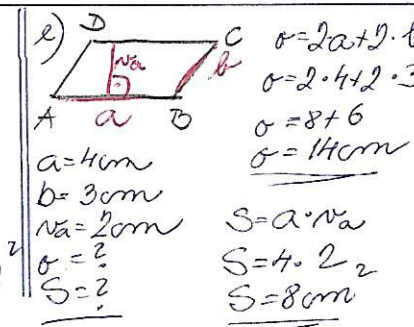 e)
D
C
va
b
A
a
B
a=4cm
b=3cm
va=2cm
o=?
S=?
o=2a+2·
o=2·4+2·3
o=8+6
o=14cm
S=a·va
S=4·2
S=8cm²
2